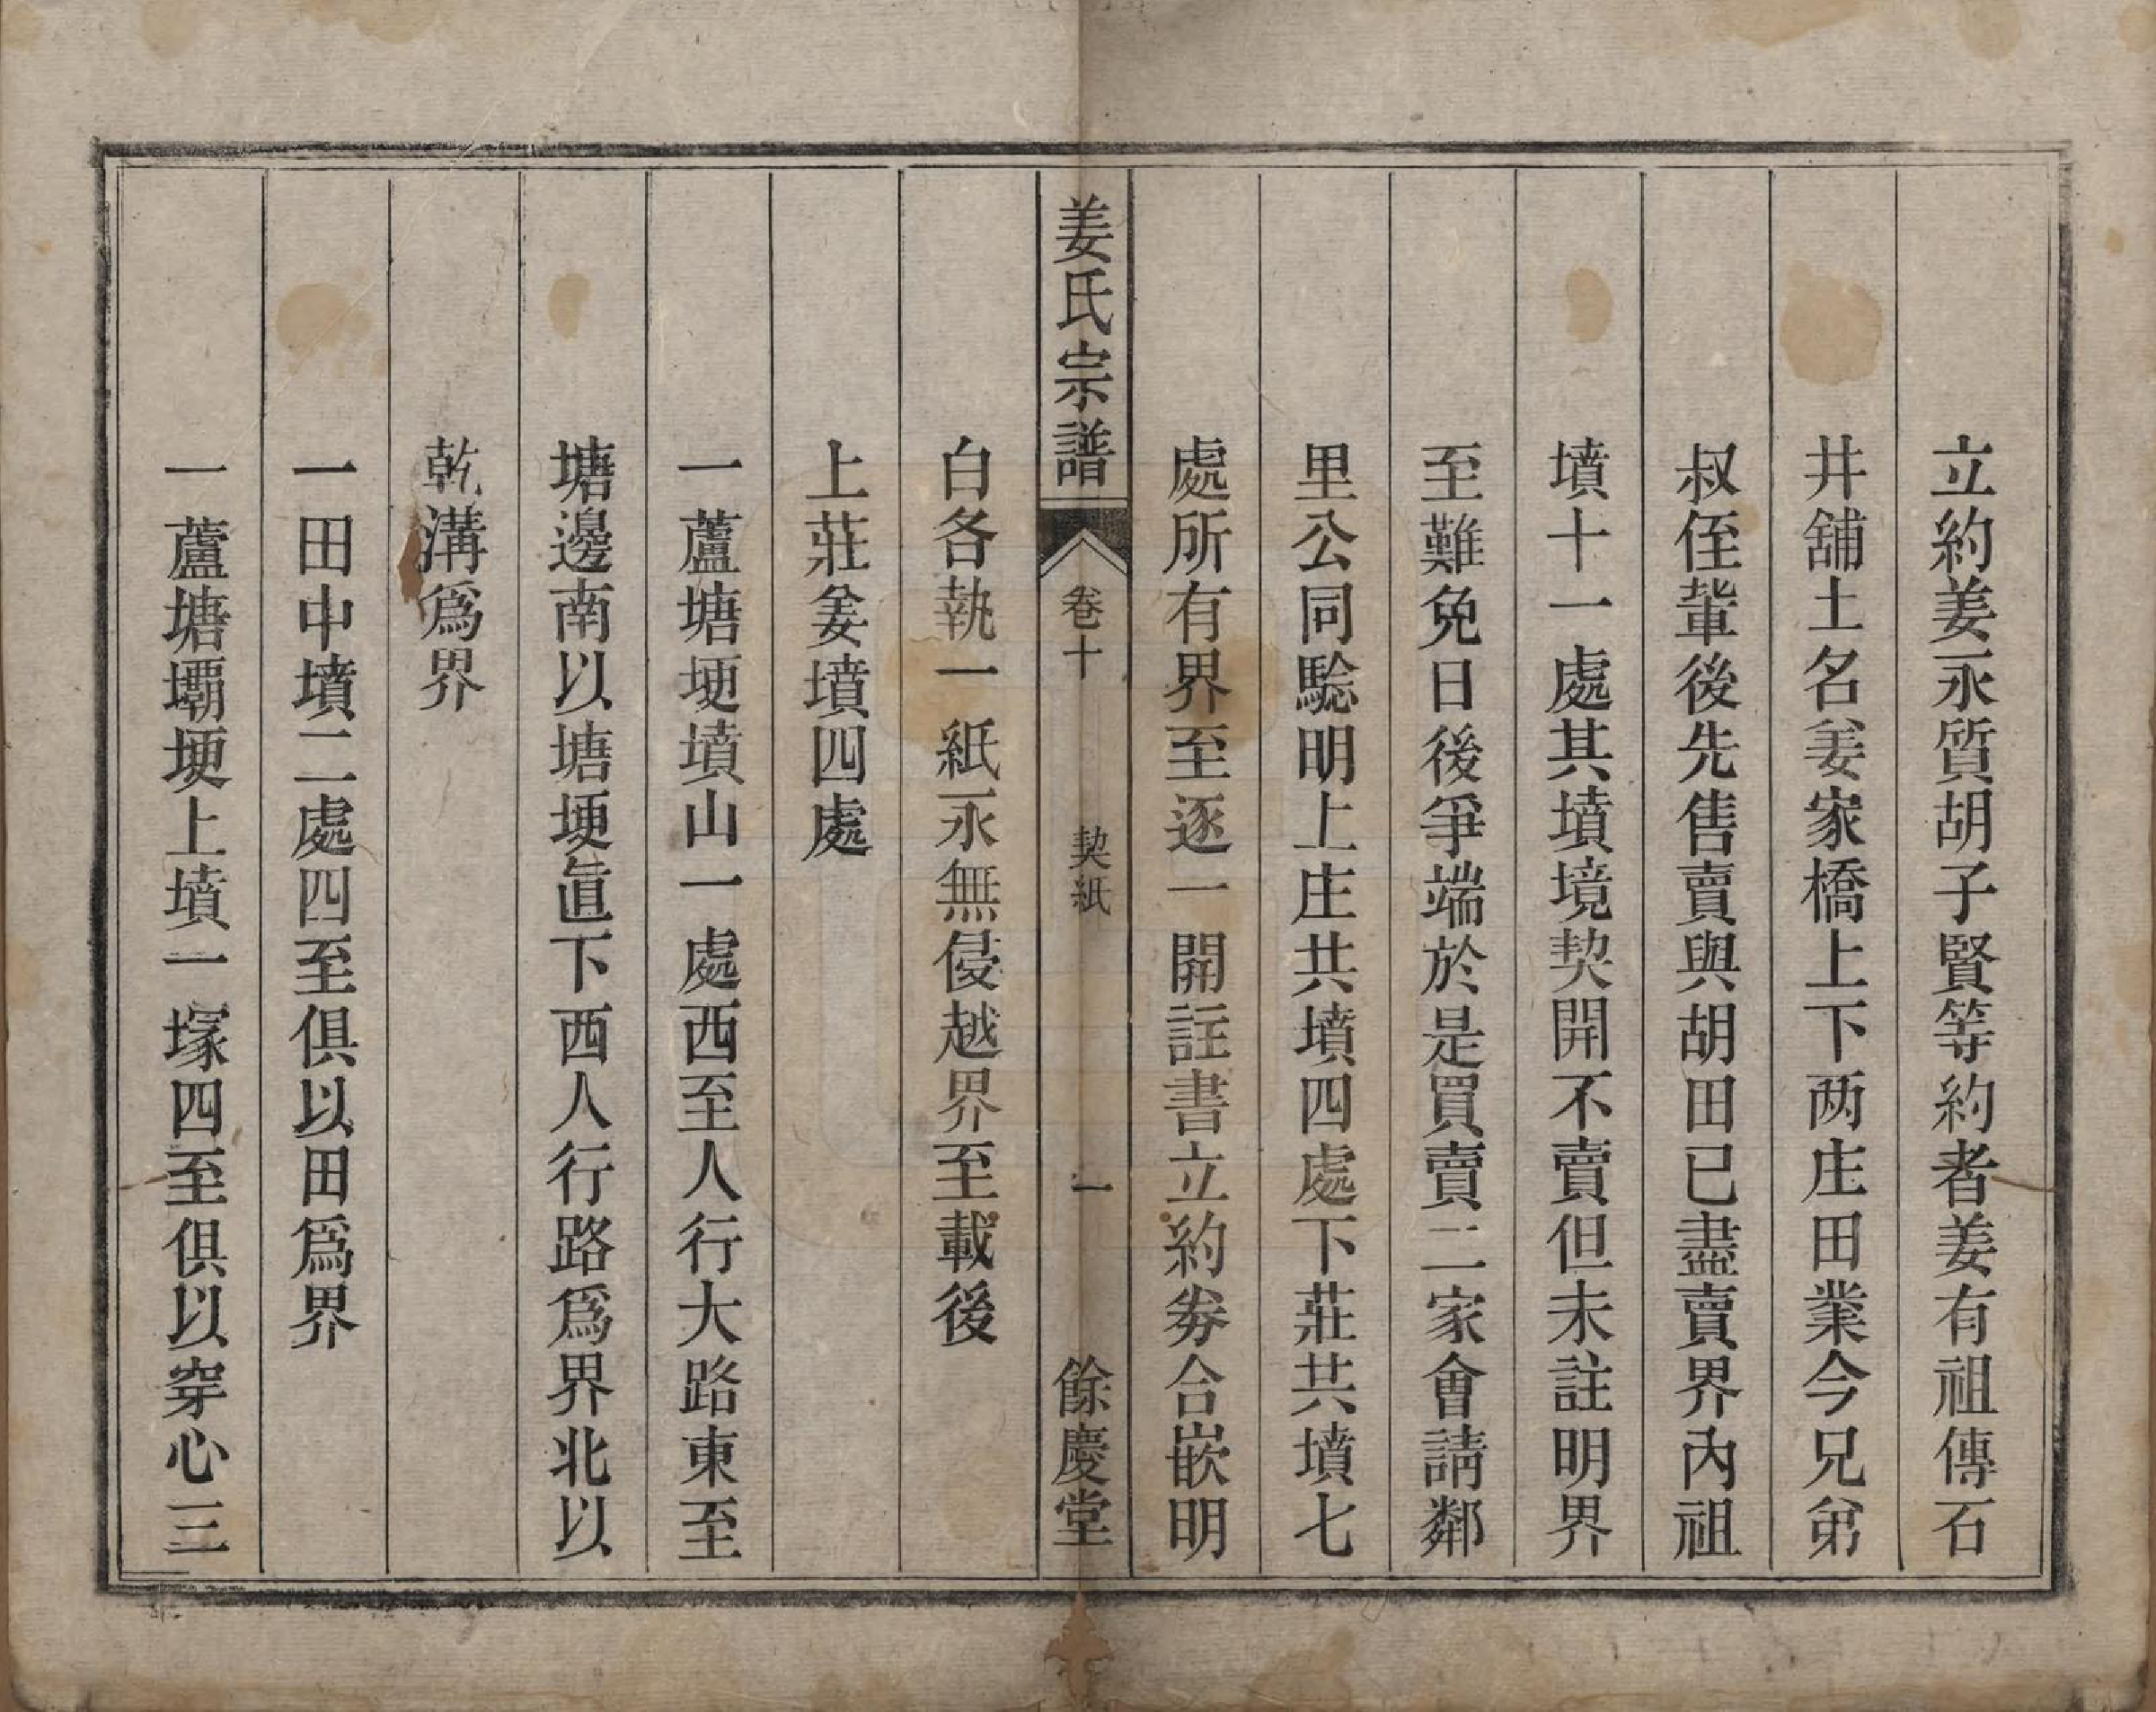 立約姜永質胡子賢等約者姜有祖傳石
井舖土名姜家橋上下两庄田業今兄弟
叔侄輩後先售賣與胡田已盡賣界內祖
墳十一處其墳境契開不賣但未註明界
至難免日後爭端於是買賣二家會請鄰
里公同騐明上庄共墳四處下莊共墳七
處所有界至逐一開註書立約券合嵌明
姜氏宗譜 卷十 契紙 一 餘慶堂
白各執一紙永無侵越界至載後
上莊姜墳四處
一蘆塘埂墳山一處西至人行大路東至
塘邊南以塘埂直下西人行路爲界北以
乾溝爲界
一田中墳二處四至俱以田爲界
一蘆塘壩埂上墳一塚四至俱以穿心三